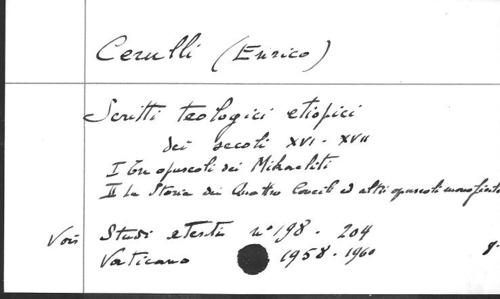 Cerulli (Enrico)
Scritti teologici etiopici
dei secoli XVI-XVII
I Tre opuscoli dei Mikaeliti
II La Storia dei Quattro Concili ed altri opuscoli monofisiti
Voir Studi e Testi n° 198 - 204
Vaticano 1958-1960 8°